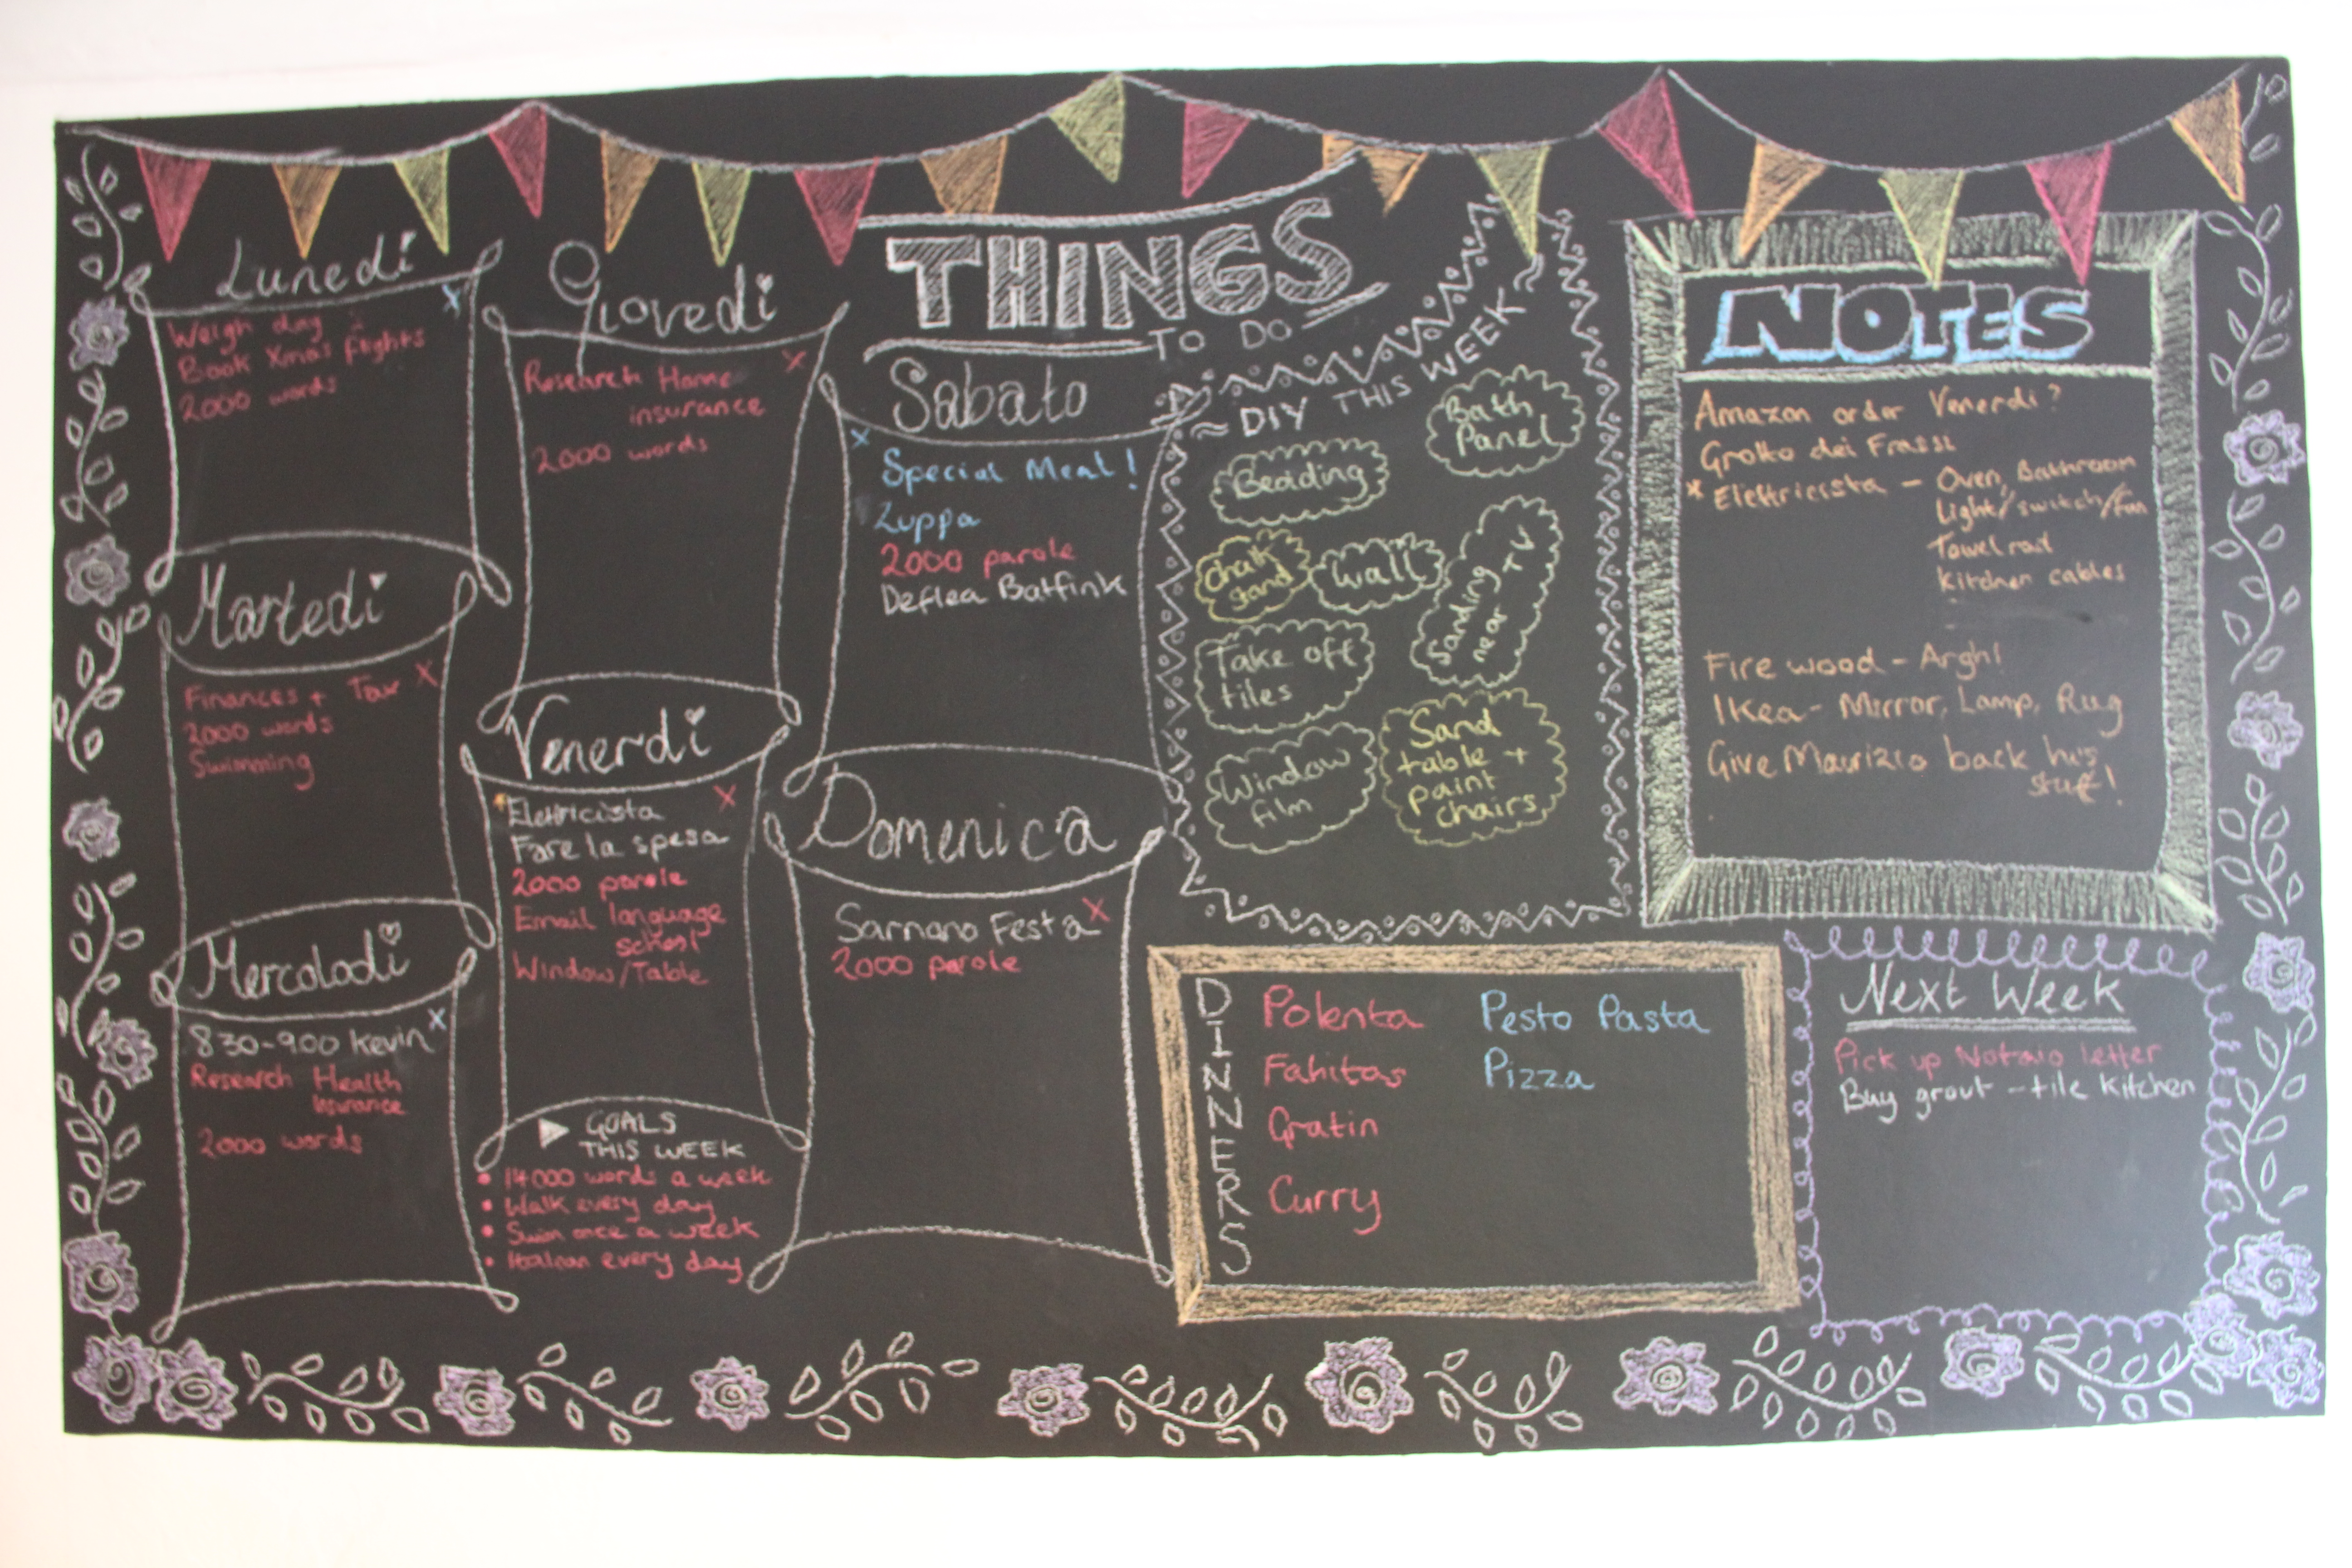 Lunedi
Weigh day
Book Xmas flights
2000 words
Martedi
Finances + Tax x
2000 words
Swimming
Mercoladi
830-900 Kevin x
Research Health
Insurance
2000 words
Giovedi
Research Home
insurance
2000 words
Venerdi
Elettricista
Fare la spesa
2000 parole
Email language
school
Window/Table
GOALS
THIS WEEK
• 14000 words a week
• Walk every day
• Swim once a week
• Italian every day
THINGS
TO DO
Sabato
Special Meal!
Zuppa
2000 parole
Deflea Batfink
Domenica
Sarnano Festa x
2000 parole
~ DIY THIS WEEK ~
Bath
Panel
Bedding
chalk
stand
Wall
Sanding
near TV
Take off
tiles
Window
film
Sand
table +
paint
chairs
NOTES
Amazon order Venerdi?
Grotto dei Frassi
x Elettricista - Oven, Bathroom
Light/switch/fan
Towel rail
Kitchen cables
Fire wood - Argh!
Ikea - Mirror, Lamp, Rug
Give Maurizio back his
stuff!
DINNERS
Polenta Pesto Pasta
Fahitas Pizza
Gratin
Curry
Next Week
Pick up Notaio letter
Buy grout - tile kitchen